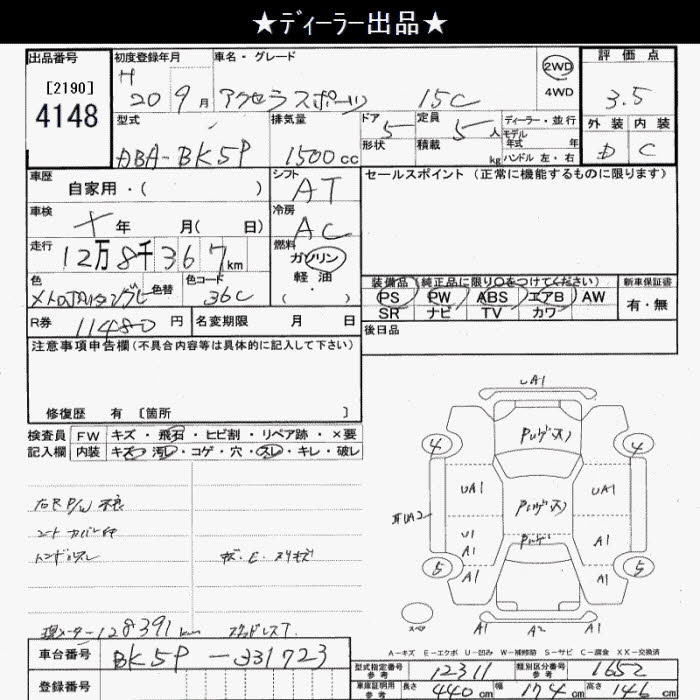 ★ディーラー出品★
出品番号 初度登録年月 車名・グレード 2WD 評価点
[2190] H 20 9月 アクセラスポーツ 15C 4WD 3.5
4148 型式 排気量 ドア 5 定員 5人 ディーラー・並行 外装 内装
ABA-BK5P 1500cc 形状 積載 kg モデル年式 年 D C
ハンドル 左・右
車歴 シフト セールスポイント(正常に機能するものに限ります)
自家用・( ) AT
車検 冷房
年 月( 日) AC
走行 燃料
12万8千367km ガソリン
色 色替 色コード 軽・油 装備品(純正品に限り○をつけてください) 新車保証書
36C ( ・ ) PS PW ABS エアB AW 有・無
SR ナビ TV カワー
R券 11480円 名変期限 月 日 後日品
注意事項申告欄(不具合内容等は具体的に記入して下さい)
修復歴 有 [箇所 ]
検査員 FW キズ・飛石・ヒビ割・リペア跡・×要
記入欄 内装 キズ・汚レ・コゲ・穴・スレ・キレ・破レ
UA1
4 4
UA1 UA1
UA2
U1
A1 A1
5 5
A1 A1
右R P/W 不良
シートカバー付
ハンドルスレ
現メーター128391km スタッドレスT.
スペア A1 A2 A1
A-キズ E-エクボ U-凹み W-補修跡 S-サビ C-腐食 XX-交換済
車台番号 BK5P-331723
型式指定番号 参考 12311 類別区分番号 参考 1652
登録番号 車庫証明用 参考 長さ 440cm 幅 174cm 高さ 146cm